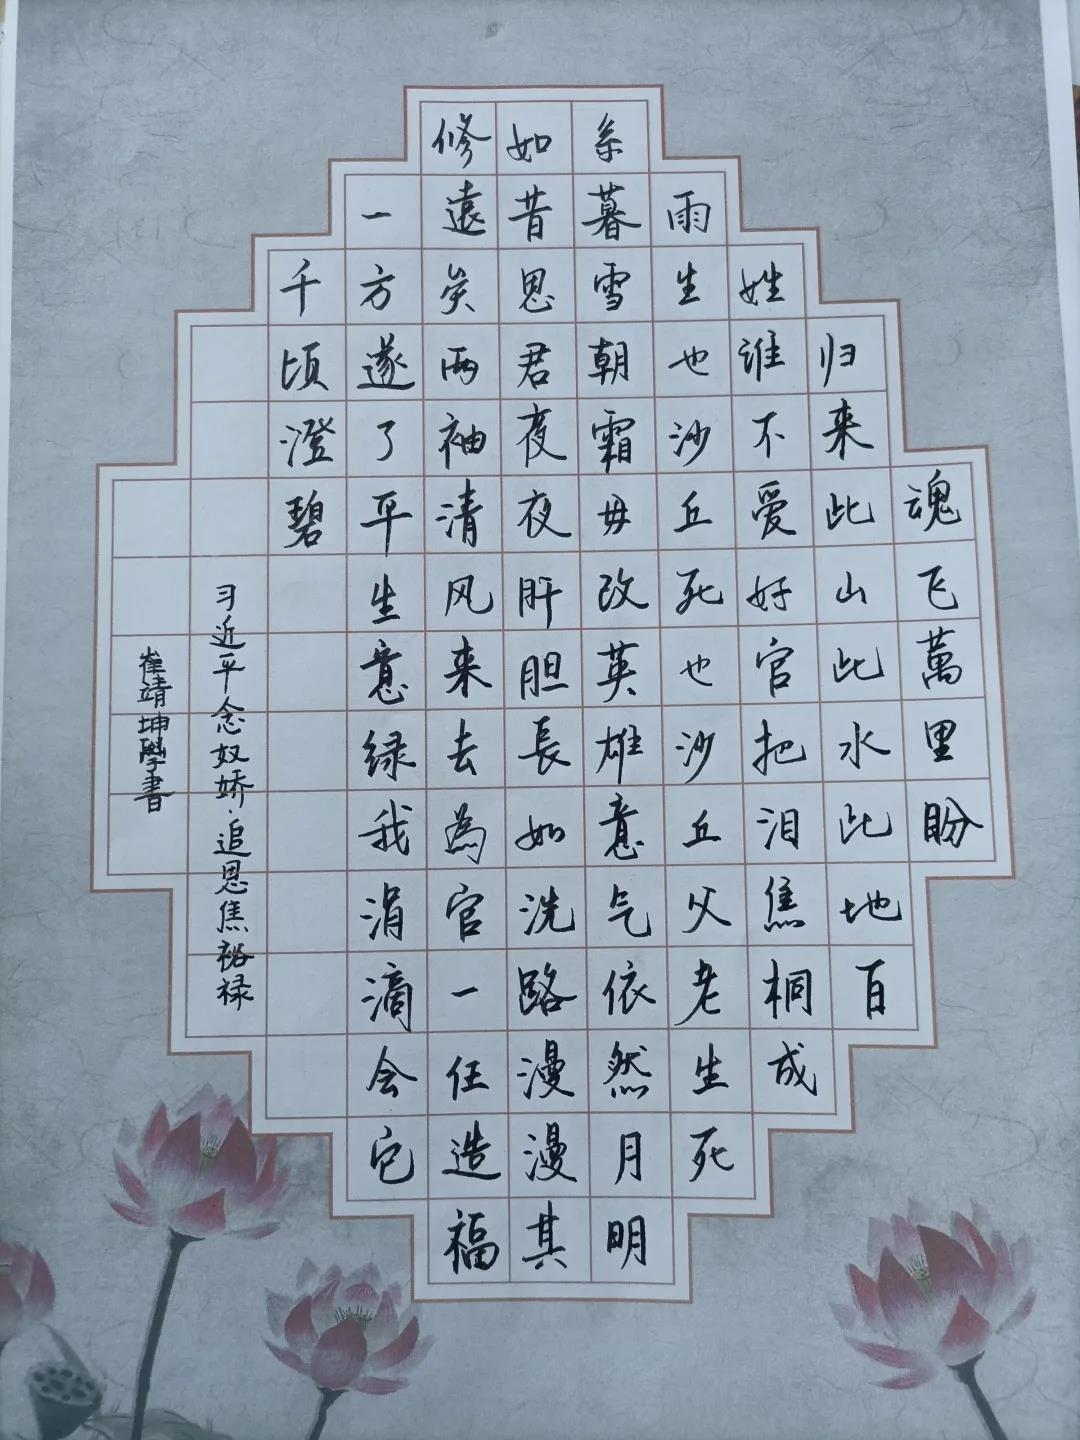 魂飞萬里盼
归来此山此水此地百
姓谁不爱好官把泪焦桐成
雨生也沙丘死也沙丘父老生死
系暮雪朝霜毋改英雄意气依然月明
如昔思君夜夜肝胆長如洗路漫漫其
修遠矣两袖清风来去為官一任造福
一方遂了平生意绿我涓滴会它
千顷澄碧
习近平念奴娇·追思焦裕禄
崔靖坤學書